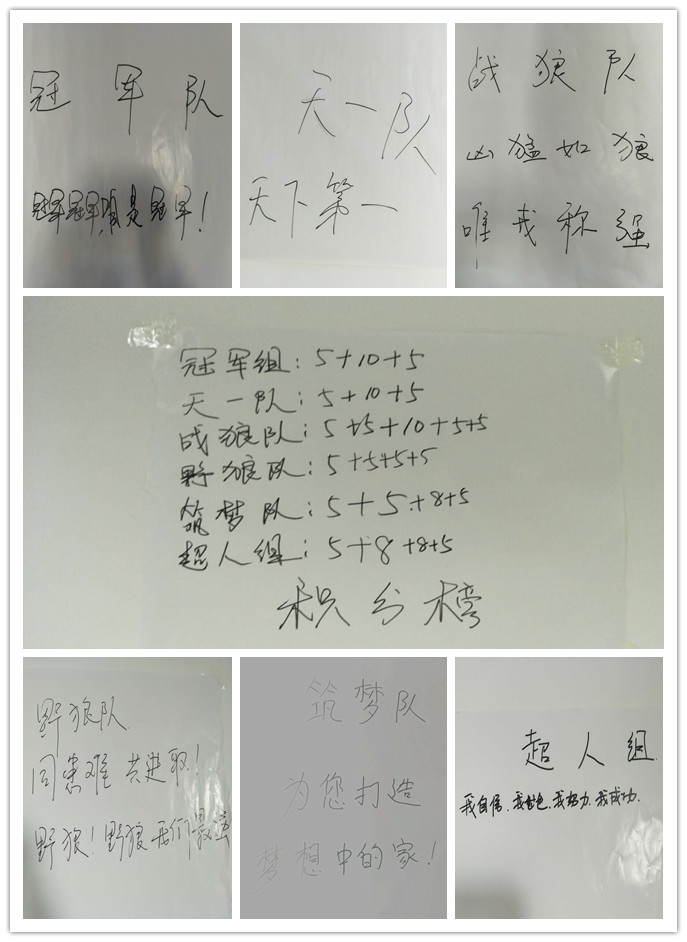 冠军队
冠军冠军,咱是冠军!
天一队
天下第一
战狼队
凶猛如狼
唯我称强
冠军组:5+10+5
天一队:5+10+5
战狼队:5+5+10+5+5
野狼队:5+5+5+5
筑梦队:5+5+8+5
超人组:5+8+8+5
积分榜
野狼队
同患难 共进取!
野狼!野狼我们最强
筑梦队
为您打造
梦想中的家!
超人组
我自信,我出色,我努力,我成功.